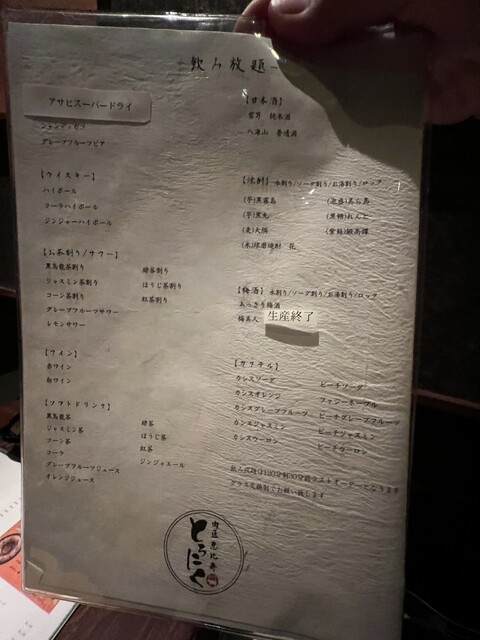 飲み放題
アサヒスーパードライ
シャンディガフ
グレープフルーツビア
【ウイスキー】
ハイボール
コーラハイボール
ジンジャーハイボール
【お茶割り/サワー】
黒烏龍茶割り
緑茶割り
ジャスミン茶割り
ほうじ茶割り
コーン茶割り
紅茶割り
グレープフルーツサワー
レモンサワー
【ワイン】
赤ワイン
白ワイン
【ソフトドリンク】
黒烏龍茶
緑茶
ジャスミン茶
ほうじ茶
コーン茶
紅茶
コーラ
ジンジャエール
グレープフルーツジュース
オレンジジュース
【日本酒】
純米酒
八海山 普通酒
【焼酎】 水割り/ソーダ割り/お湯割り/ロック
(芋)黒霧島
(泡盛)美ら島
(芋)黒丸
(黒糖)れんと
(麦)大隅
(紫蘇)鍛高譚
(米)球磨焼酎 花
【梅酒】 水割り/ソーダ割り/お湯割り/ロック
あっさり梅酒
梅美人
生産終了
【カクテル】
カシスソーダ
ピーチソーダ
カシスオレンジ
ファジーネーブル
カシスグレープフルーツ
ピーチグレープフルーツ
カシスジャスミン
ピーチジャスミン
カシスウーロン
ピーチウーロン
飲み放題は120分制30分前ラストオーダーとなります
グラス交換制でお願い致します
肉匠恵比寿
とろにく